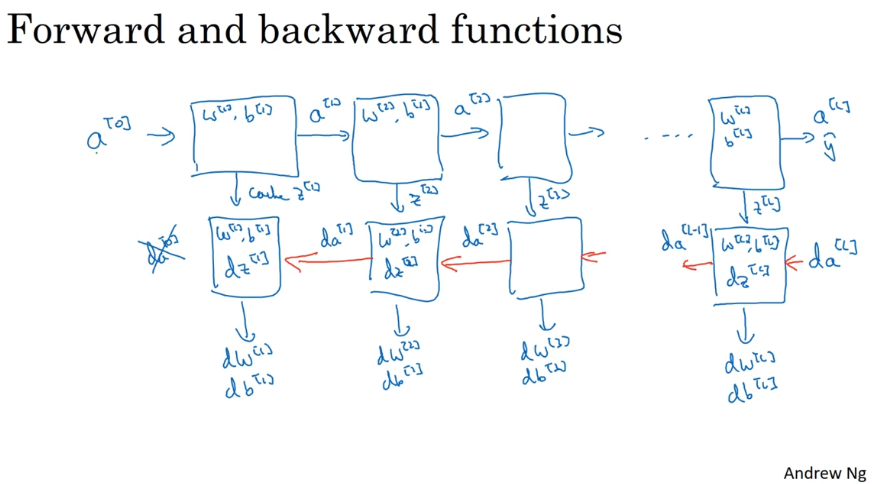 Forward and backward functions
a^[0] → w^[1], b^[1] a^[1] w^[2], b^[2] a^[2] → ..... w^[L] b^[L] a^[L] ŷ
cache z^[1] z^[2] z^[3] z^[L]
da^[0] w^[1], b^[1] dz^[1] da^[1] w^[2], b^[2] dz^[2] da^[2] da^[L-1] w^[L], b^[L] dz^[L] da^[L]
dw^[1] dw^[2] dw^[3] dw^[L]
db^[1] db^[2] db^[3] db^[L]
Andrew Ng